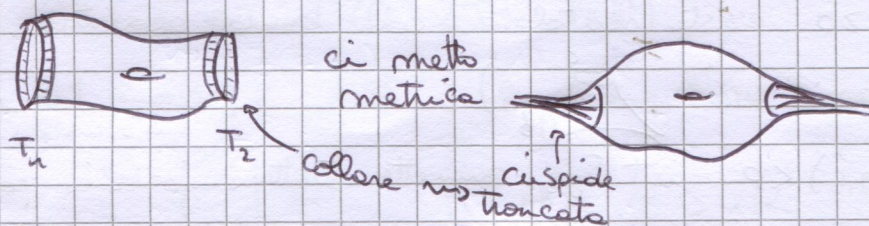 ci metto
metrica
T₁
T₂
collare ⇝ cuspide
troncata